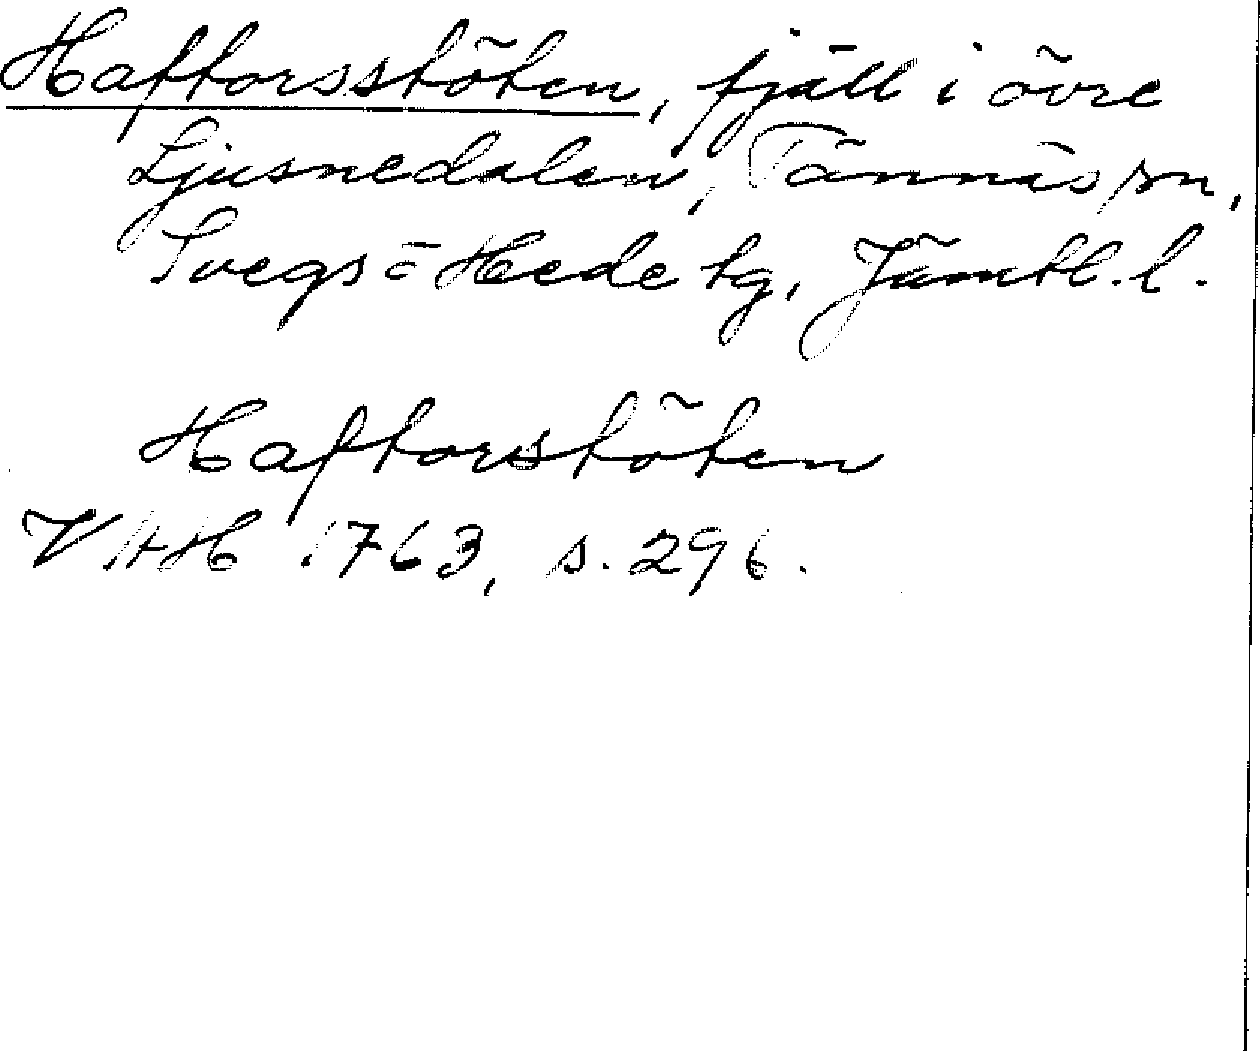 Haftorsstöten, fjäll i övre
Ljusnedalen, Tännäs sn,
Svegs-Hede tg, Jämtl. l.
Haftorstöten
VAH 1763, s. 296.